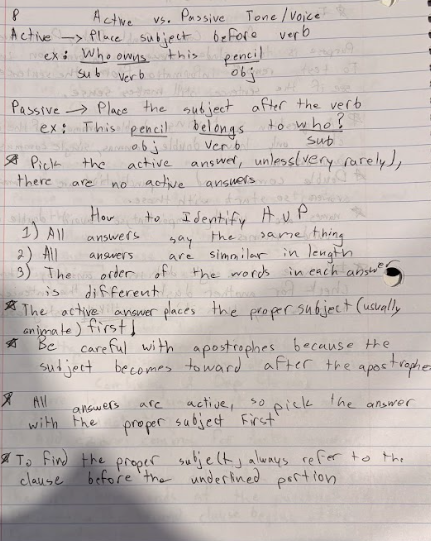 8 Active vs. Passive Tone/Voice
Active → Place subject before verb
ex: Who owns this pencil
sub verb obj
Passive → Place the subject after the verb
ex: This pencil belongs to who?
obj verb sub
☆ Pick the active answer, unless (very rarely),
there are no active answers
How to Identify A.V.P
1) All answers say the same thing
2) All answers are simnilar in length
3) The order of the words in each answer
is different
☆ The active answer places the proper subject (usually
animate) first!
☆ Be careful with apostrophes because the
subject becomes toward after the apostrophe
☆ All answers are active, so pick the answer
with the proper subject first
☆ To find the proper subject, always refer to the
clause before the underlined portion